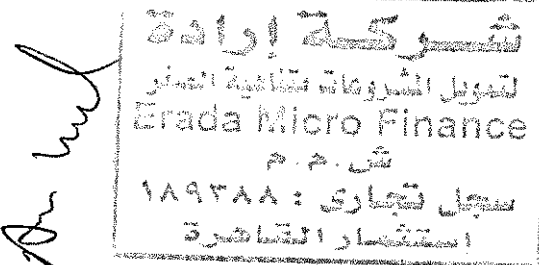 شركة إرادة
لتمويل المشروعات متناهية الصغر
Erada Micro Finance
ش.م.م
سجل تجارى : ١٨٩٣٨٨
استثمار القاهرة